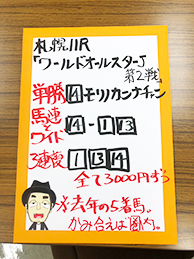 札幌11R
「ワールドオールスターJ
第2戦」
単勝 4 モリノカンナチャン
馬連とワイド 4-1 3
3連複 1 3 4
全て3000円ずつ
☆去年の5着馬。
かみ合えば圏内。